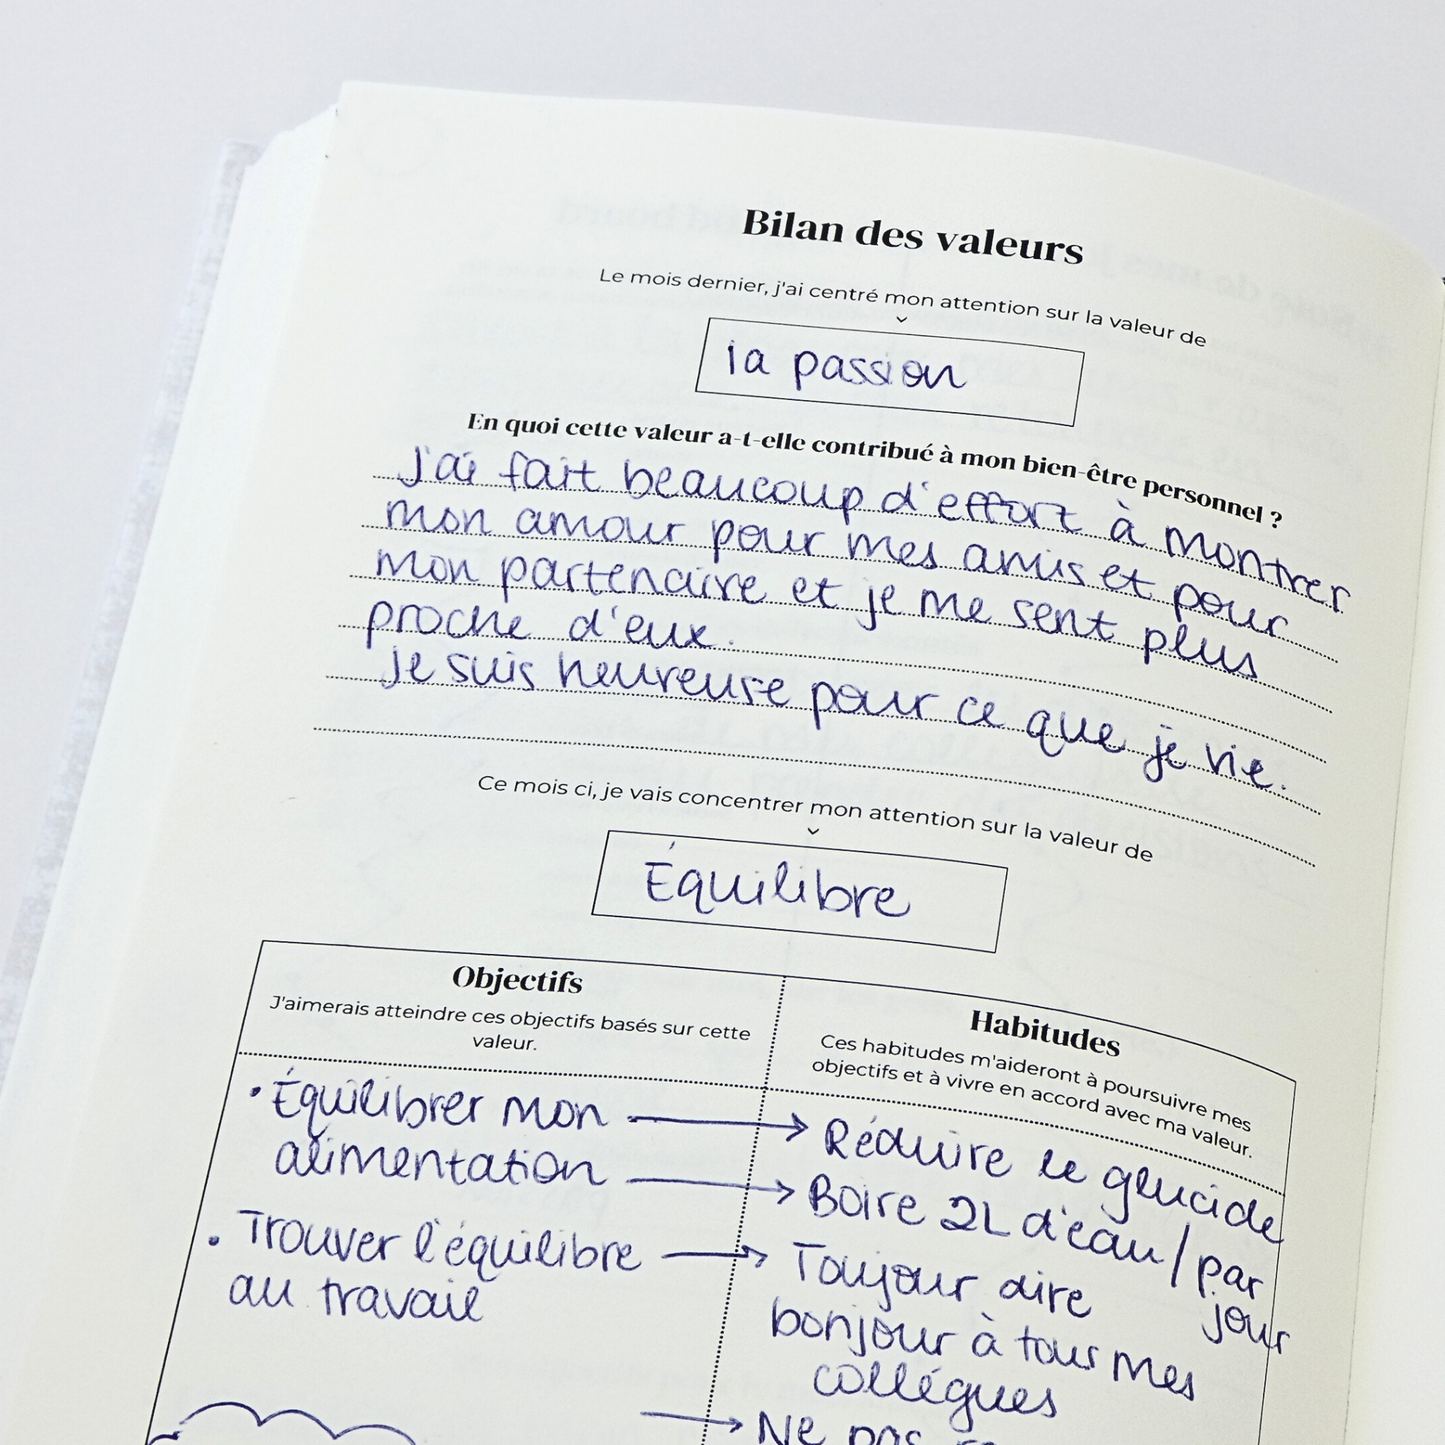 Bilan des valeurs
Le mois dernier, j'ai centré mon attention sur la valeur de
la passion
En quoi cette valeur a-t-elle contribué à mon bien-être personnel ?
J'ai fait beaucoup d'effort à montrer
mon amour pour mes amis et pour
mon partenaire et je me sent plus
proche d'eux.
je suis heureuse pour ce que je vie.
Ce mois ci, je vais concentrer mon attention sur la valeur de
Équilibre
Objectifs
J'aimerais atteindre ces objectifs basés sur cette
valeur.
• Équilibrer mon
alimentation
• Trouver l'équilibre
au travail
Habitudes
Ces habitudes m'aideront à poursuivre mes
objectifs et à vivre en accord avec ma valeur.
→ Réduire le glucide
→ Boire 2L d'eau / par
jour
→ Toujour dire
bonjour à tous mes
collégues
→ Ne pas